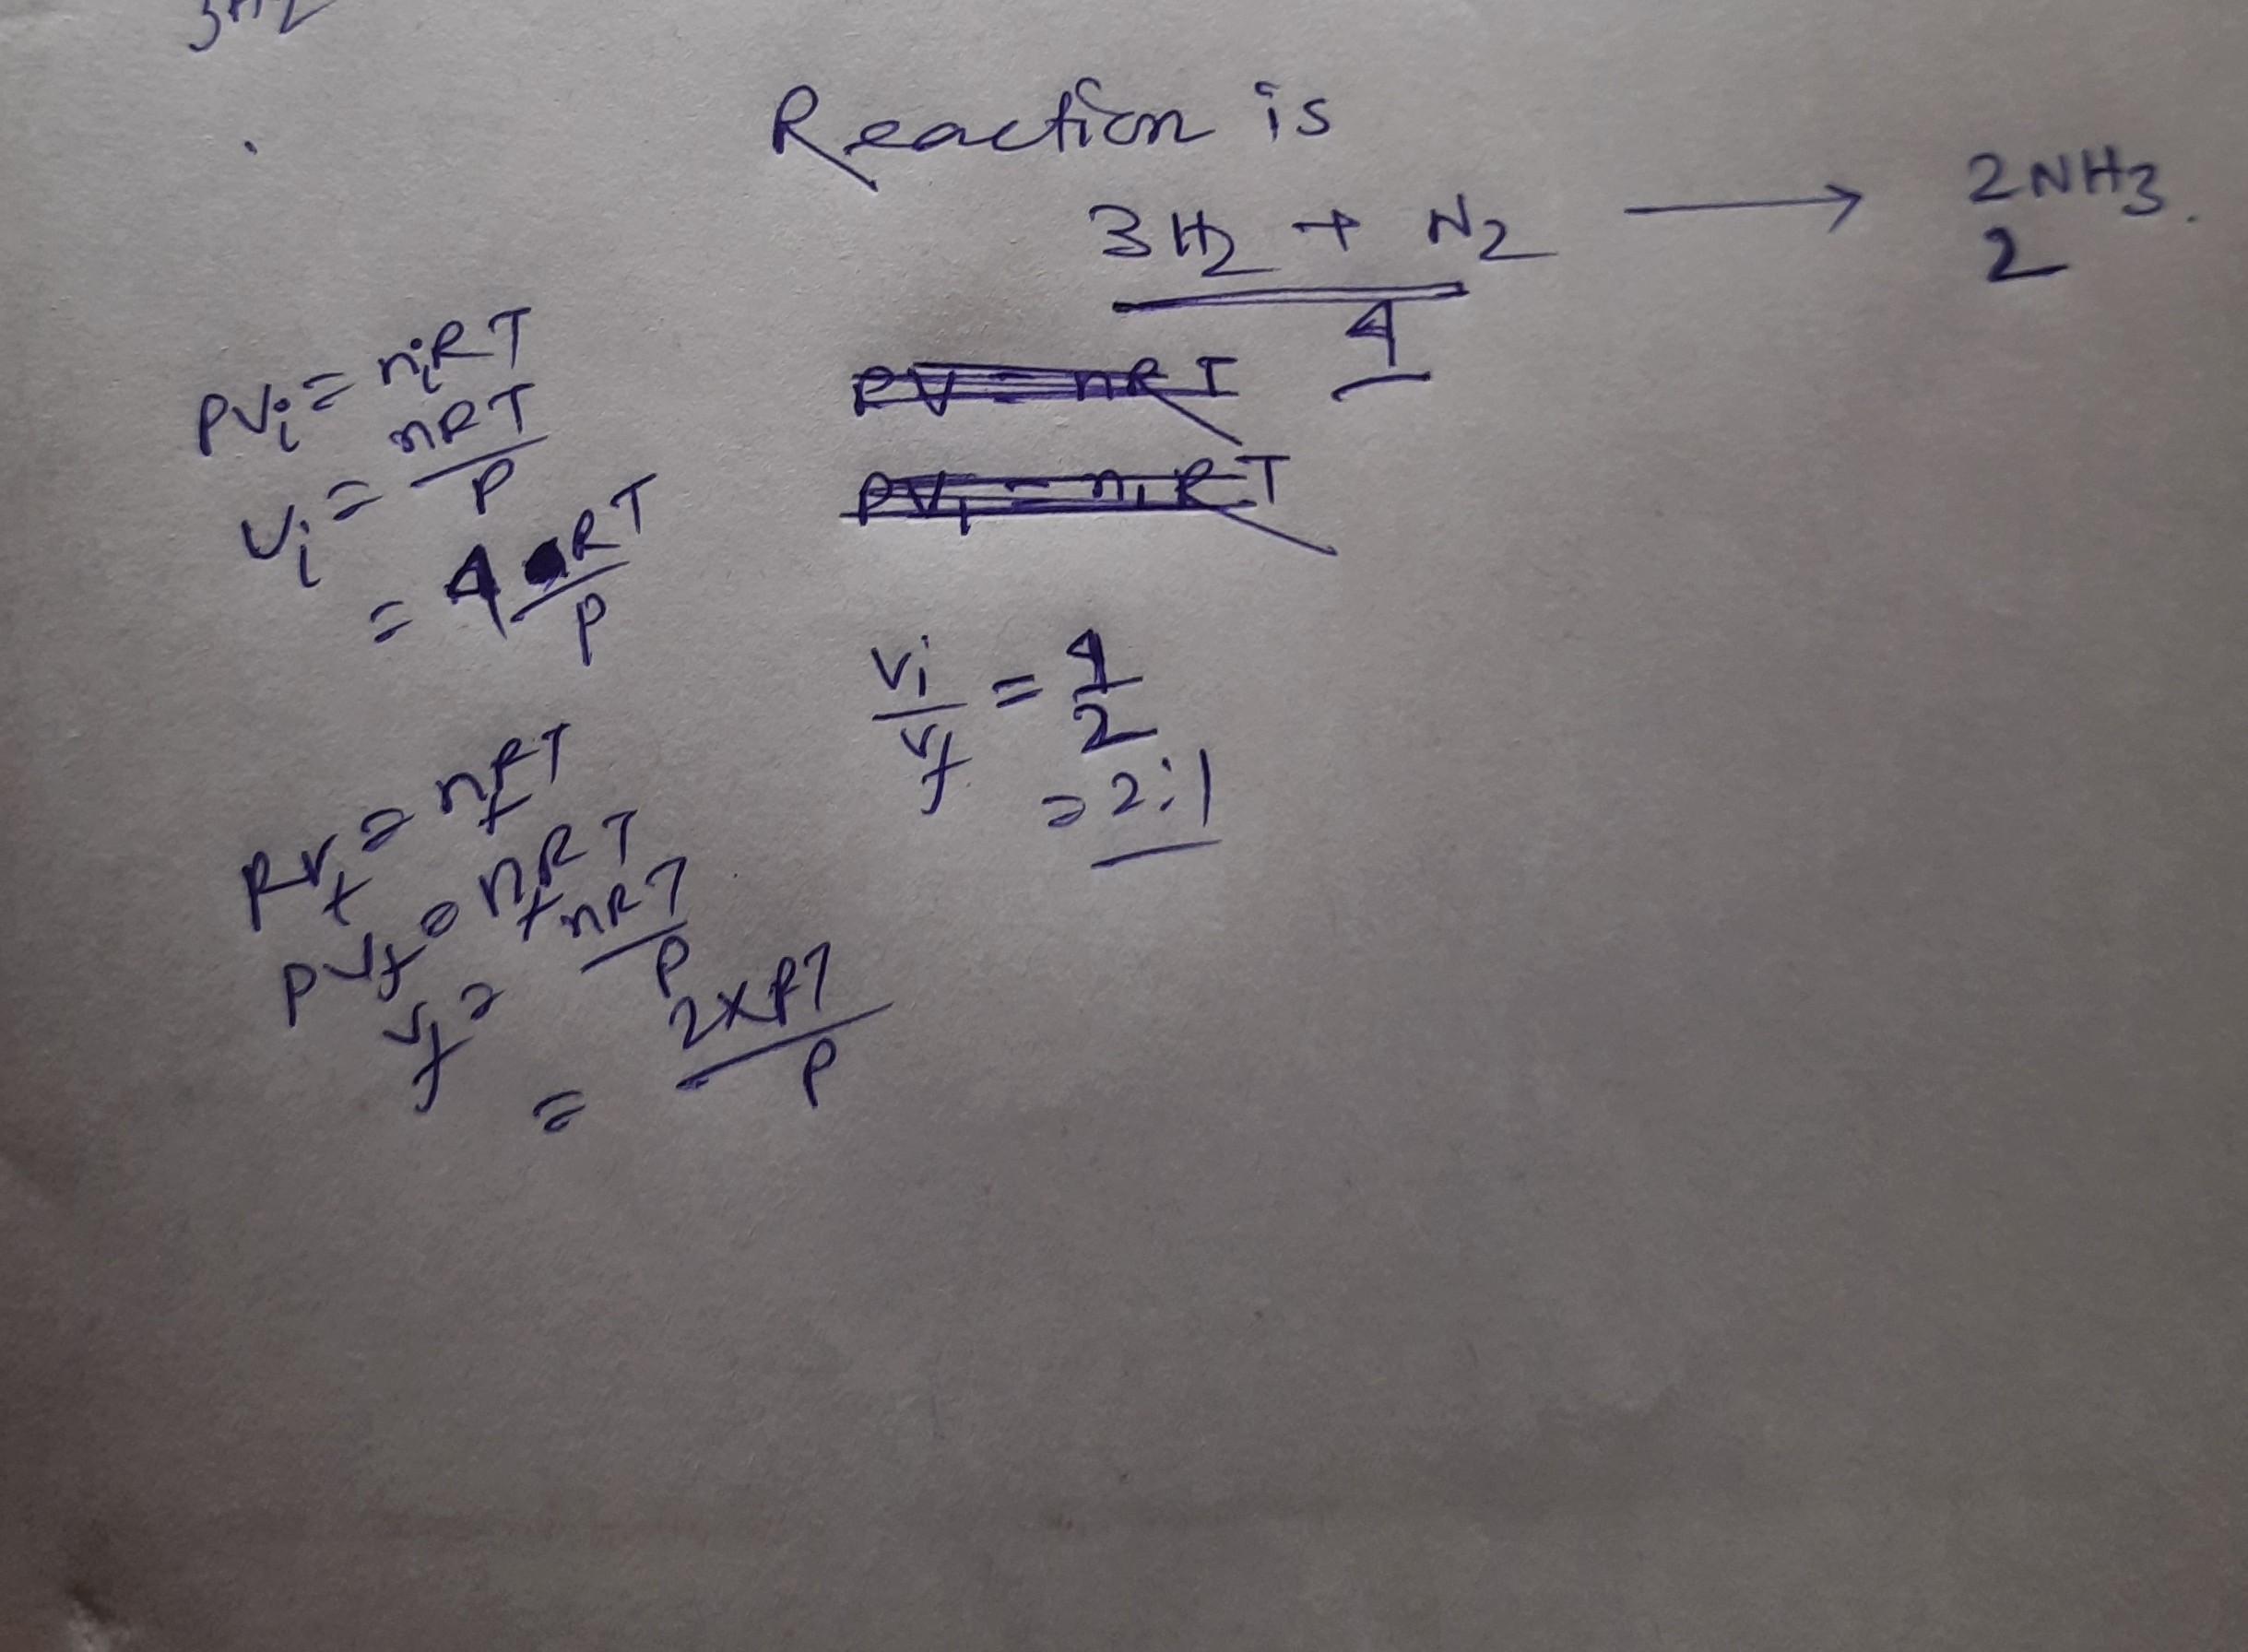 3H2
Reaction is
3H2 + N2 ⟶ 2NH3.
4
2
PVi = niRT
Vi = nRT/P
= 4 RT/P
PV = nRT
PV1 = n1RT
Vi/Vf = 4/2
= 2:1
PVf = nfRT
PVf = nfRT
Vf = nRT/P
= 2xRT/P